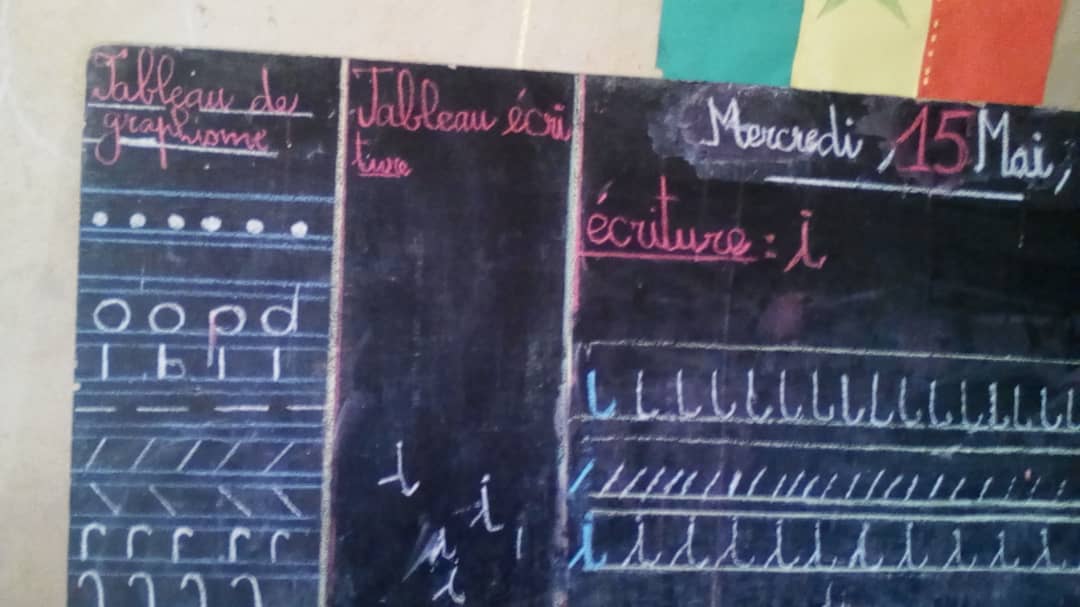 Tableau de
graphisme
o o p d
l h l l
r r r r r
Tableau écri
ture
i
i
i
i
Mercredi, 15 Mai,
écriture : i
i i i i i i i i i i i